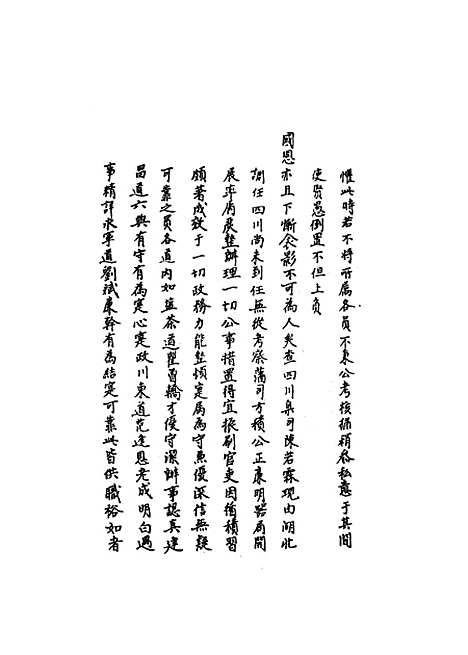 懼此時若不將所屬各員不秉公考核稍稍存私意于其間
使賢愚倒置不但上負
國恩亦且下慚衾影不可為人矣查四川臬司陳若霖現由湖北
調任四川尚未到任無從考察藩司方積公正廉明器局開
展率屬嚴整辦理一切公事措置得宜振刷官吏因循積習
頗著成效于一切政務力能整頓寔屬為守兼優深信無疑
可靠之員各道內如鹽茶道瞿曾輯才優守潔辦事認真建
昌道六與有守有為寔心寔政川東道范逢恩老成明白遇
事精詳永寧道劉斌廉幹有為結寔可靠此皆供職裕如者